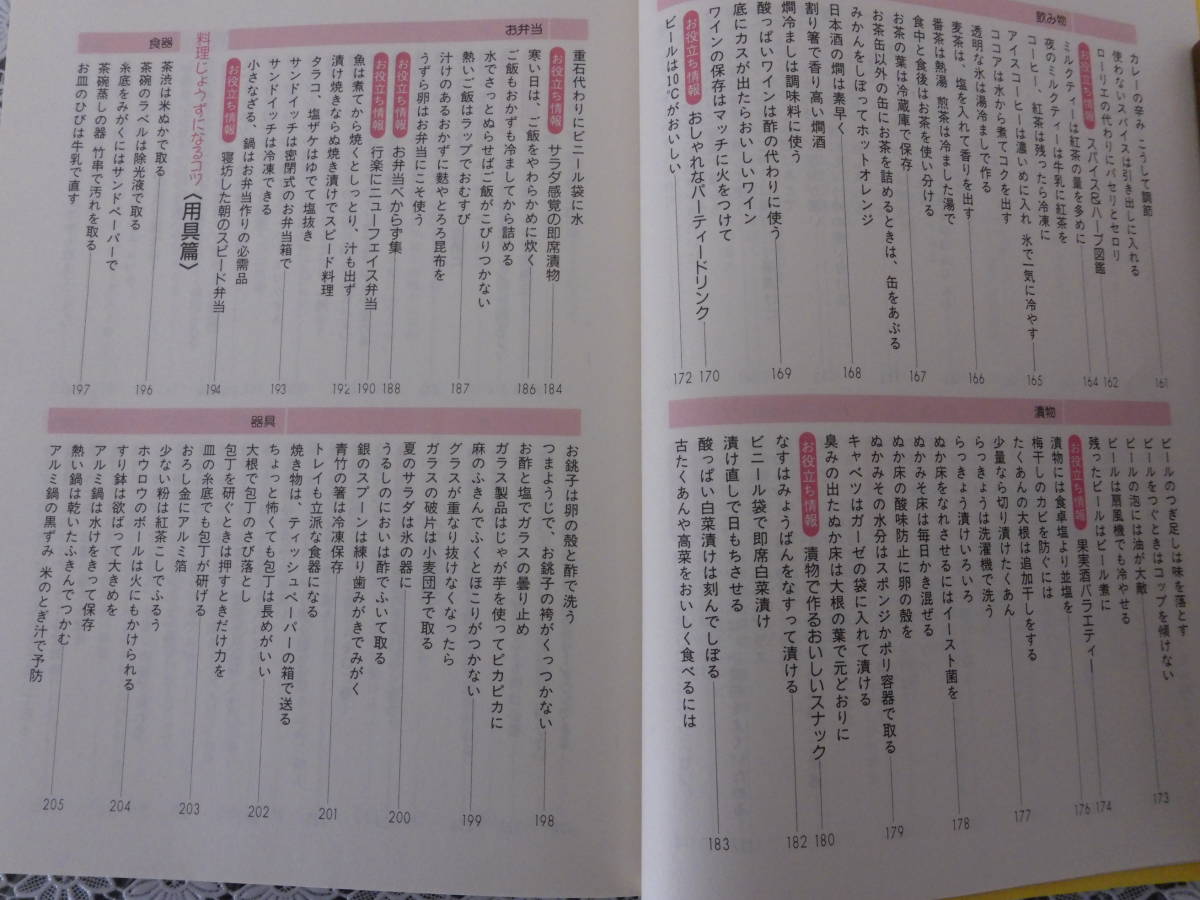 飲み物
カレーの辛み こうして調節
使わないスパイスは引き出しに入れる 161
ローリエの代わりにパセリとセロリ 162
お役立ち情報 スパイス&ハーブ図鑑 164
ミルクティーは紅茶の量を多めに
夜のミルクティーは牛乳に紅茶を
コーヒー、紅茶は残ったら冷凍に 165
アイスコーヒーは濃いめに入れ 氷で一気に冷やす
ココアは水から煮てコクを出す
透明な氷は湯冷ましで作る 166
麦茶は、塩を入れて香りを出す
番茶は熱湯 煎茶は冷ました湯で
食中と食後はお茶を使い分ける 167
お茶の葉は冷蔵庫で保存
お茶缶以外の缶にお茶を詰めるときは、缶をあぶる
みかんをしぼってホットオレンジ 168
日本酒の燗は素早く
割り箸で香り高い燗酒
燗冷ましは調味料に使う 169
酸っぱいワインは酢の代わりに使う
底にカスが出たらおいしいワイン
ワインの保存はマッチに火をつけて
お役立ち情報 おしゃれなパーティードリンク 170
ビールは10℃がおいしい 172
漬物
ビールのつぎ足しは味を落とす
ビールをつぐときはコップを傾けない 173
ビールの泡には油が大敵
ビールは扇風機でも冷やせる
残ったビールはビール煮に 174
お役立ち情報 果実酒バラエティー 176
漬物には食卓塩より並塩を
梅干しのカビを防ぐには
たくあんの大根は追加干しをする 177
少量なら切り漬けたくあん
らっきょうは洗濯機で洗う
らっきょう漬けいろいろ 178
ぬか床をなれさせるにはイースト菌を
ぬかみそ床は毎日かき混ぜる
ぬか床の酸味防止に卵の殻を
ぬかみその水分はスポンジかポリ容器で取る 179
キャベツはガーゼの袋に入れて漬ける
臭みの出たぬか床は大根の葉で元どおりに
お役立ち情報 漬物で作るおいしいスナック 180
なすはみょうばんをなすって漬ける 182
ビニール袋で即席白菜漬け
漬け直しで日もちさせる
酸っぱい白菜漬けは刻んでしぼる 183
古たくあんや高菜をおいしく食べるには
お弁当
重石代わりにビニール袋に水
お役立ち情報 サラダ感覚の即席漬物 184
寒い日は、ご飯をやわらかめに炊く 186
ご飯もおかずも冷ましてから詰める
水でさっとぬらせばご飯がこびりつかない
熱いご飯はラップでおむすび 187
汁けのあるおかずに麩やとろろ昆布を
うずら卵はお弁当にこそ使う
お役立ち情報 お弁当べからず集 188
お役立ち情報 行楽にニューフェイス弁当 190
魚は煮てから焼くとしっとり、汁も出ず
漬け焼きならぬ焼き漬けでスピード料理 192
タラコ、塩ザケはゆでて塩抜き
サンドイッチは密閉式のお弁当箱で
サンドイッチは冷凍できる 193
小さなざる、鍋はお弁当作りの必需品
お役立ち情報 寝坊した朝のスピード弁当 194
料理じょうずになるコツ〈用具篇〉
食器
茶渋は米ぬかで取る
茶碗のラベルは除光液で取る 196
糸底をみがくにはサンドペーパーで
茶碗蒸しの器 竹串で汚れを取る
お皿のひびは牛乳で直す 197
器具
お銚子は卵の殻と酢で洗う
つまようじで、お銚子の袴がくっつかない 198
お酢と塩でガラスの曇り止め
ガラス製品はじゃが芋を使ってピカピカに
麻のふきんでふくとほこりがつかない 199
グラスが重なり抜けなくなったら
ガラスの破片は小麦団子で取る
夏のサラダは氷の器に 200
うるしのにおいは酢でふいて取る
銀のスプーンは練り歯みがきでみがく
青竹の箸は冷凍保存 201
トレイも立派な食器になる
焼き物は、ティッシュペーパーの箱で送る
ちょっと怖くても包丁は長めがいい 202
大根で包丁のさび落とし
包丁を研ぐときは押すときだけ力を
皿の糸底でも包丁が研げる
おろし金にアルミ箔 203
少ない粉は紅茶こしでふるう
ホウロウのボールは火にもかけられる
すり鉢は欲ばって大きめを 204
アルミ鍋は水けをきって保存
熱い鍋は乾いたふきんでつかむ
アルミ鍋の黒ずみ 米のとぎ汁で予防 205